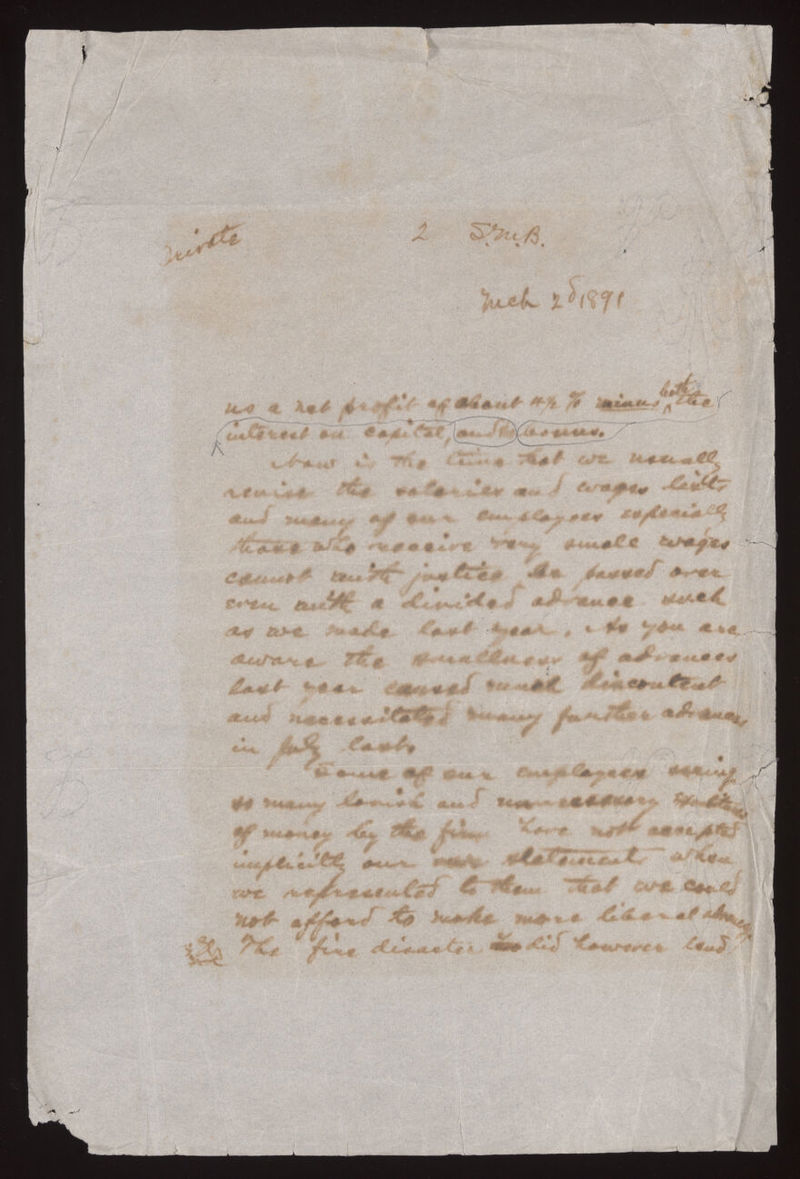 Private
2 S.M.B.
Mch 2d 1891
us a net profit of about 4½ % minus both the
interest on capital, and bonus.
Now is the time that we usually
revise the salaries and wages lists
and many of our employees especially
those who receive very small wages
cannot with justice be passed over
even with a divided advance such
as we made last year. As you are
aware the smallness of advances
last year caused much discontent
and necessitated many further advances
in July last.
Some of our employees seeing
so many lavish and unnecessary
of money by the firm have not accepted
implicitly our statements when
we represented to them that we could
not afford to make more liberal advances
The fire disaster did however lend